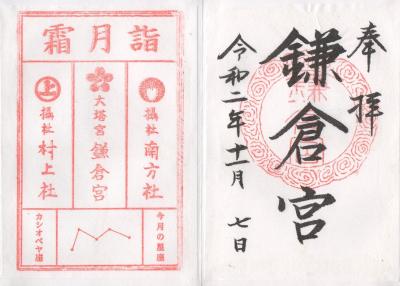 奉拝
鎌倉宮
令和二年十一月 七日
霜月詣
摂社 南方社
大塔宮 鎌倉宮
上
摂社 村上社
今月の星座
カシオペヤ座